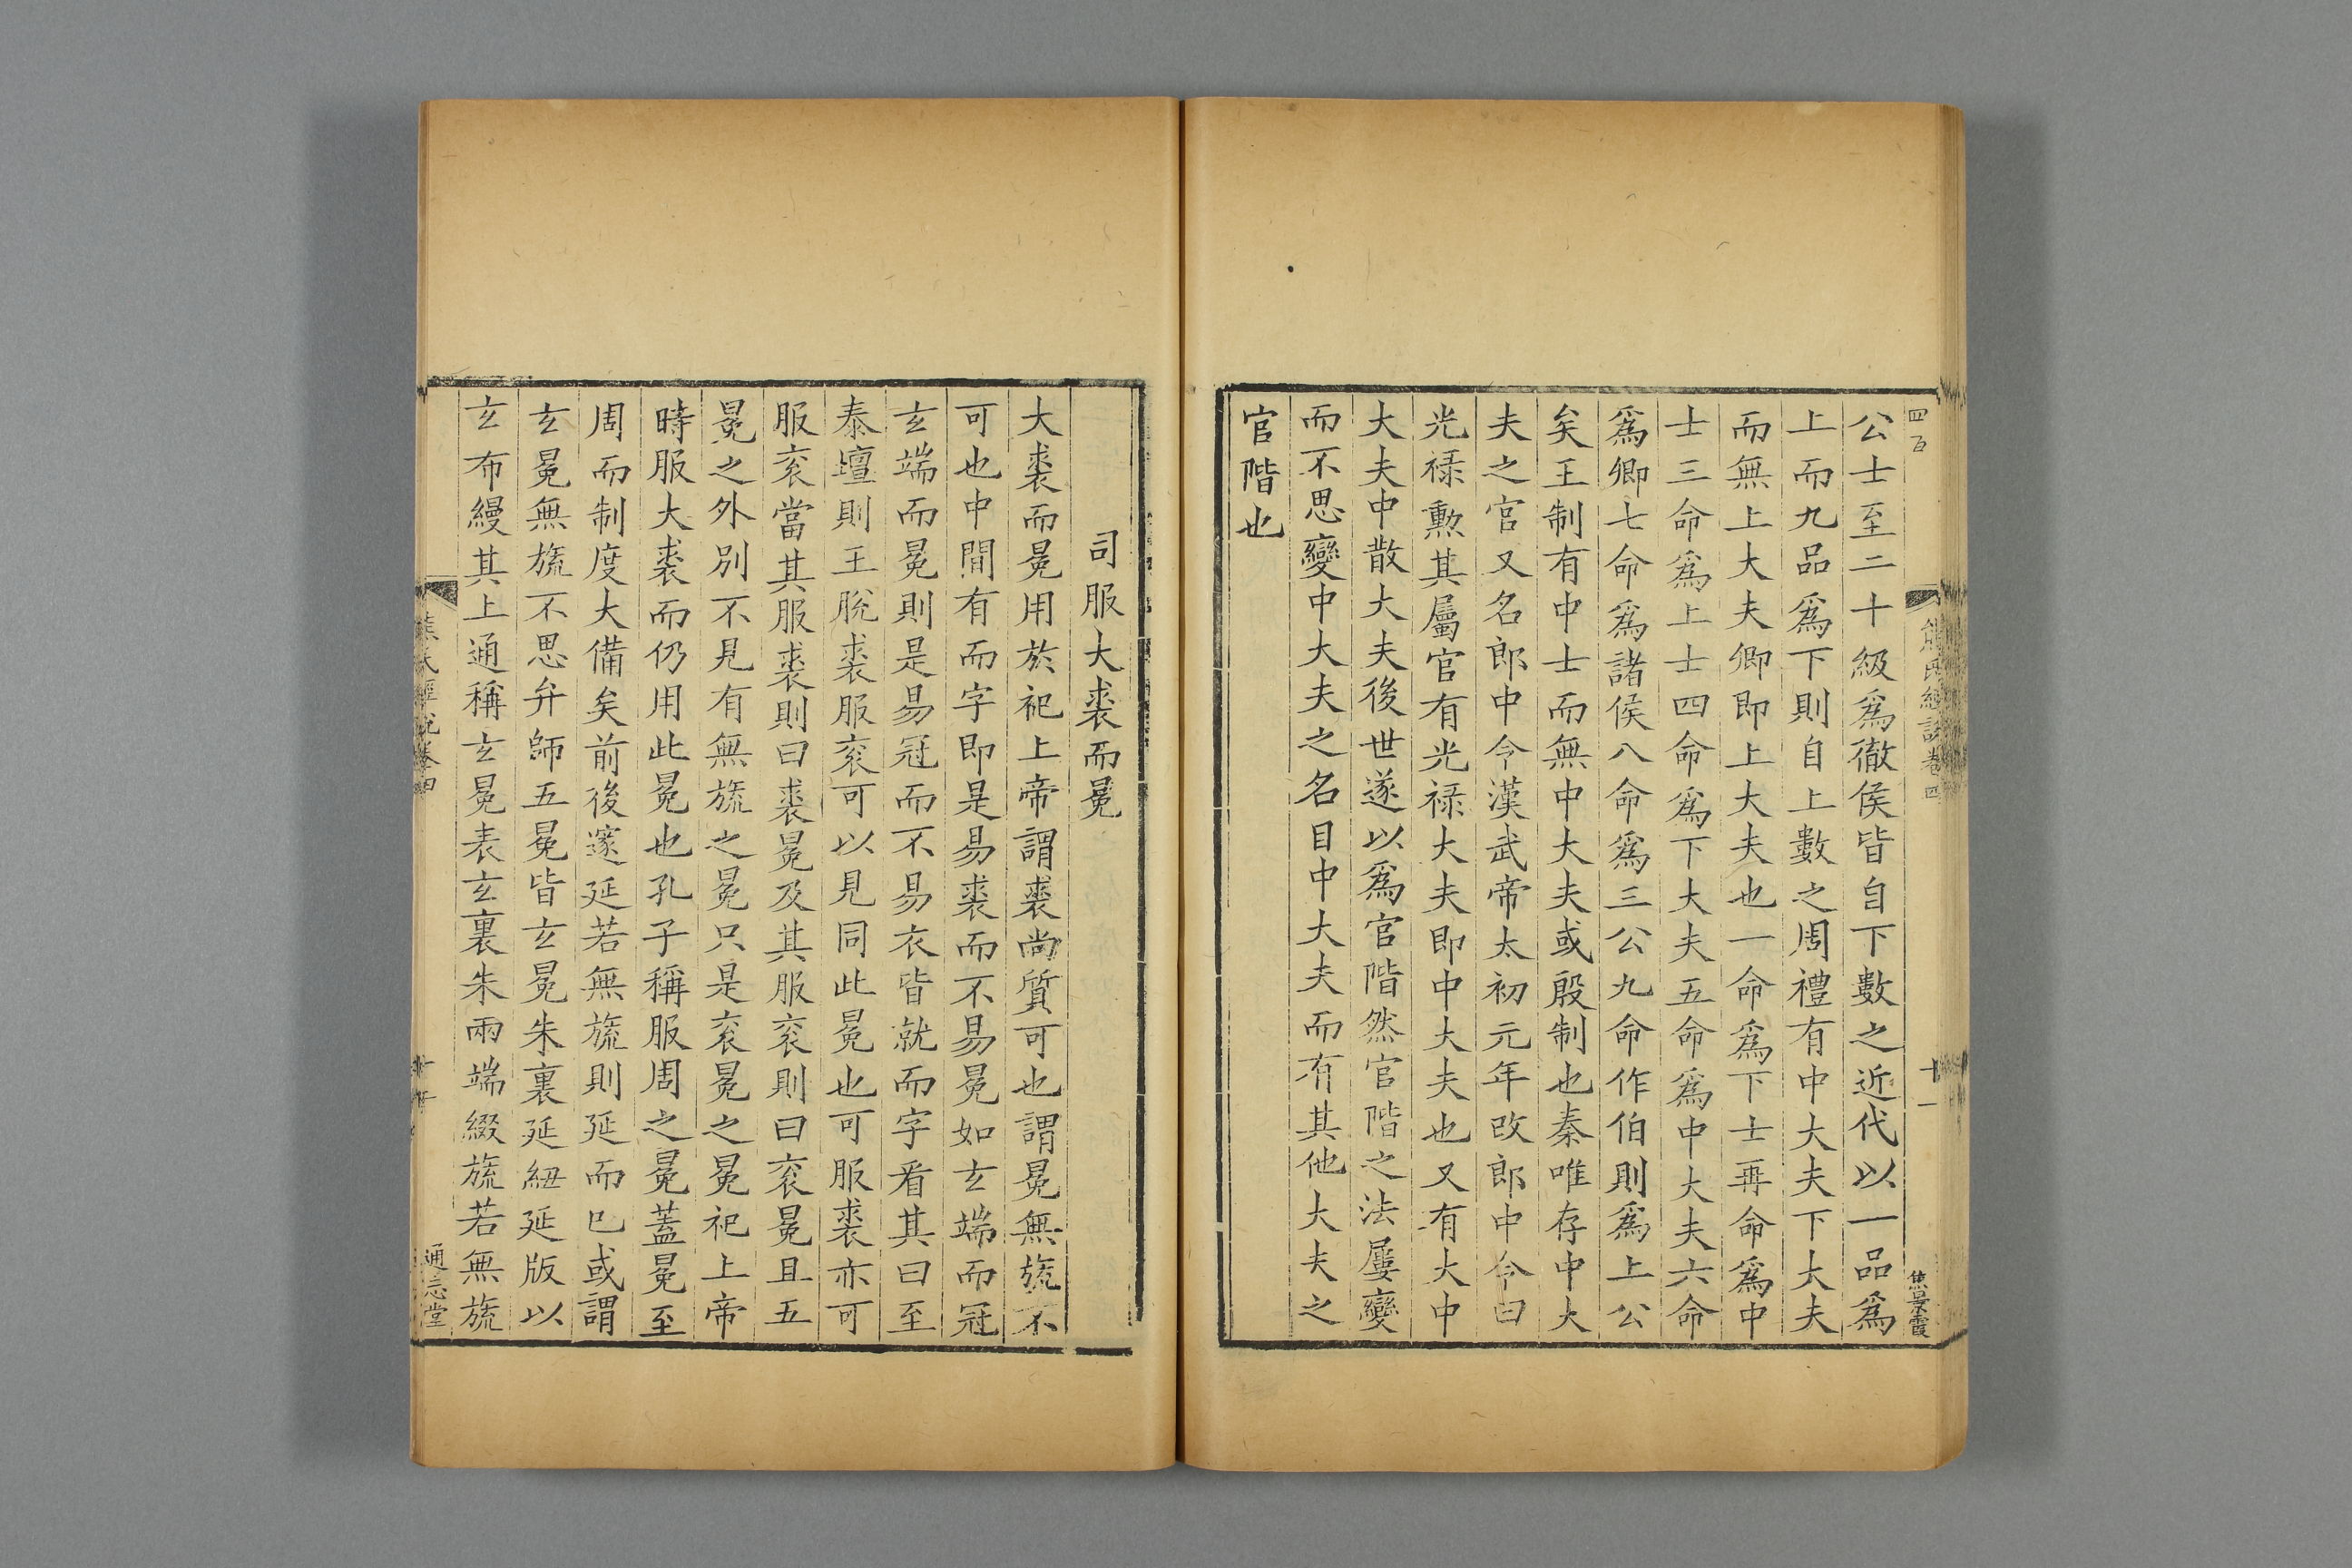 四百
熊氏經說卷四
十一
公士至二十級爲徹侯皆自下數之近代以一品爲
上而九品爲下則自上數之周禮有中大夫下大夫
而無上大夫卿即上大夫也一命爲下士再命爲中
士三命爲上士四命爲下大夫五命爲中大夫六命
爲卿七命爲諸侯八命爲三公九命作伯則爲上公
矣王制有中士而無中大夫或殷制也秦唯存中大
夫之官又名郎中令漢武帝太初元年改郎中令曰
光祿勲其屬官有光祿大夫即中大夫也又有大中
大夫中散大夫後世遂以爲官階然官階之法屢變
而不思變中大夫之名目中大夫而有其他大夫之
官階也
司服大裘而冕
大裘而冕用於祀上帝謂裘尚質可也謂冕無旒不
可也中間有而字即是易裘而不易冕如玄端而冠
玄端而冕則是易冠而不易衣皆就而字看其曰至
泰壇則王脫裘服衮可以見同此冕也可服裘亦可
服衮當其服裘則曰裘冕及其服衮則曰衮冕且五
冕之外別不見有無旒之冕只是衮冕之冕祀上帝
時服大裘而仍用此冕也孔子稱服周之冕蓋冕至
周而制度大備矣前後邃延若無旒則延而巳或謂
玄冕無旒不思弁師五冕皆玄冕朱裏延紐延版以
玄布縵其上通稱玄冕表玄裏朱兩端綴旒若無旒
熊氏經說卷四
通志堂